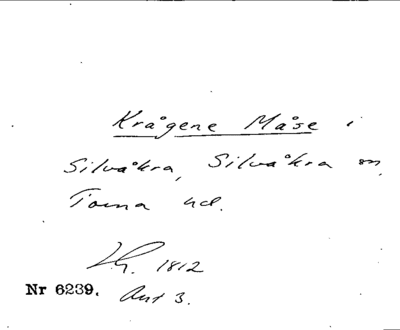 Krågene Måse i
Silvåkra, Silvåkra sn,
Torna hd.
1812
Nr 6239. Akt 3.